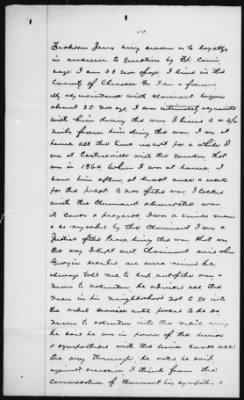 10
Jackson being sworn as to loyalty
in answer to question by Sp. Com.
says I am 38 years of age I live in the
County of Cherokee Ga I am a farmer
My acquaintance with Claimant began
about 25 years ago I was intimately acquainted
with him during the war I lived 3 or 3½
miles from him during the war, I was at
home all the time except for a while I
was at Cartersville with the
in 1864. When I was at home I
saw him often, at least once a week
for the last 3 years of the war I talked
with the Claimant about the war
its cause & progress, I was a union man
& so regarded by the Claimant I was a
Justice of the Peace during the war. Not on
the way I kept out Claimant said when
Georgia seceded we were ruined he
always told me to keep out of the war &
never to volunteer he advised all the
men in his neighborhood not to go into
the rebel service until forced to do so
never to volunteer into the rebel army
he said he was in favor of the union
& sympathized with the union cause all
the way through, he voted he said
against secession I think from the
conversation of Claimant his sympathy &